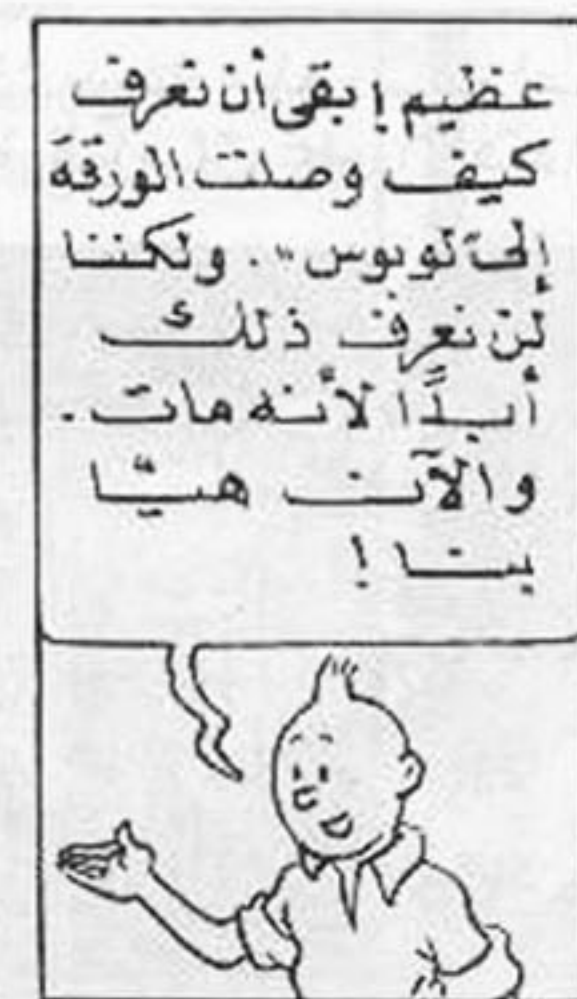 عظيم! بقى أن نعرف
كيف وصلت الورقة
إلى لوبوس". ولكننا
لن نعرف ذلك
أبدًا لأنه مات.
والآن هيَّا
بنا!